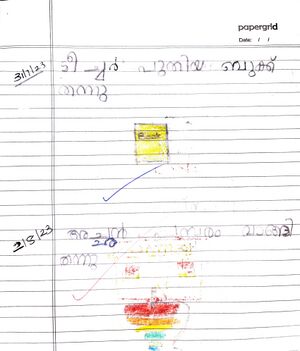 papergrid
Date: / /
31/7/23
ടീച്ചർ പുതിയ ബുക്ക്
തന്നു
Book
2/8/23
അച്ഛൻ വാങ്ങി
തന്നു